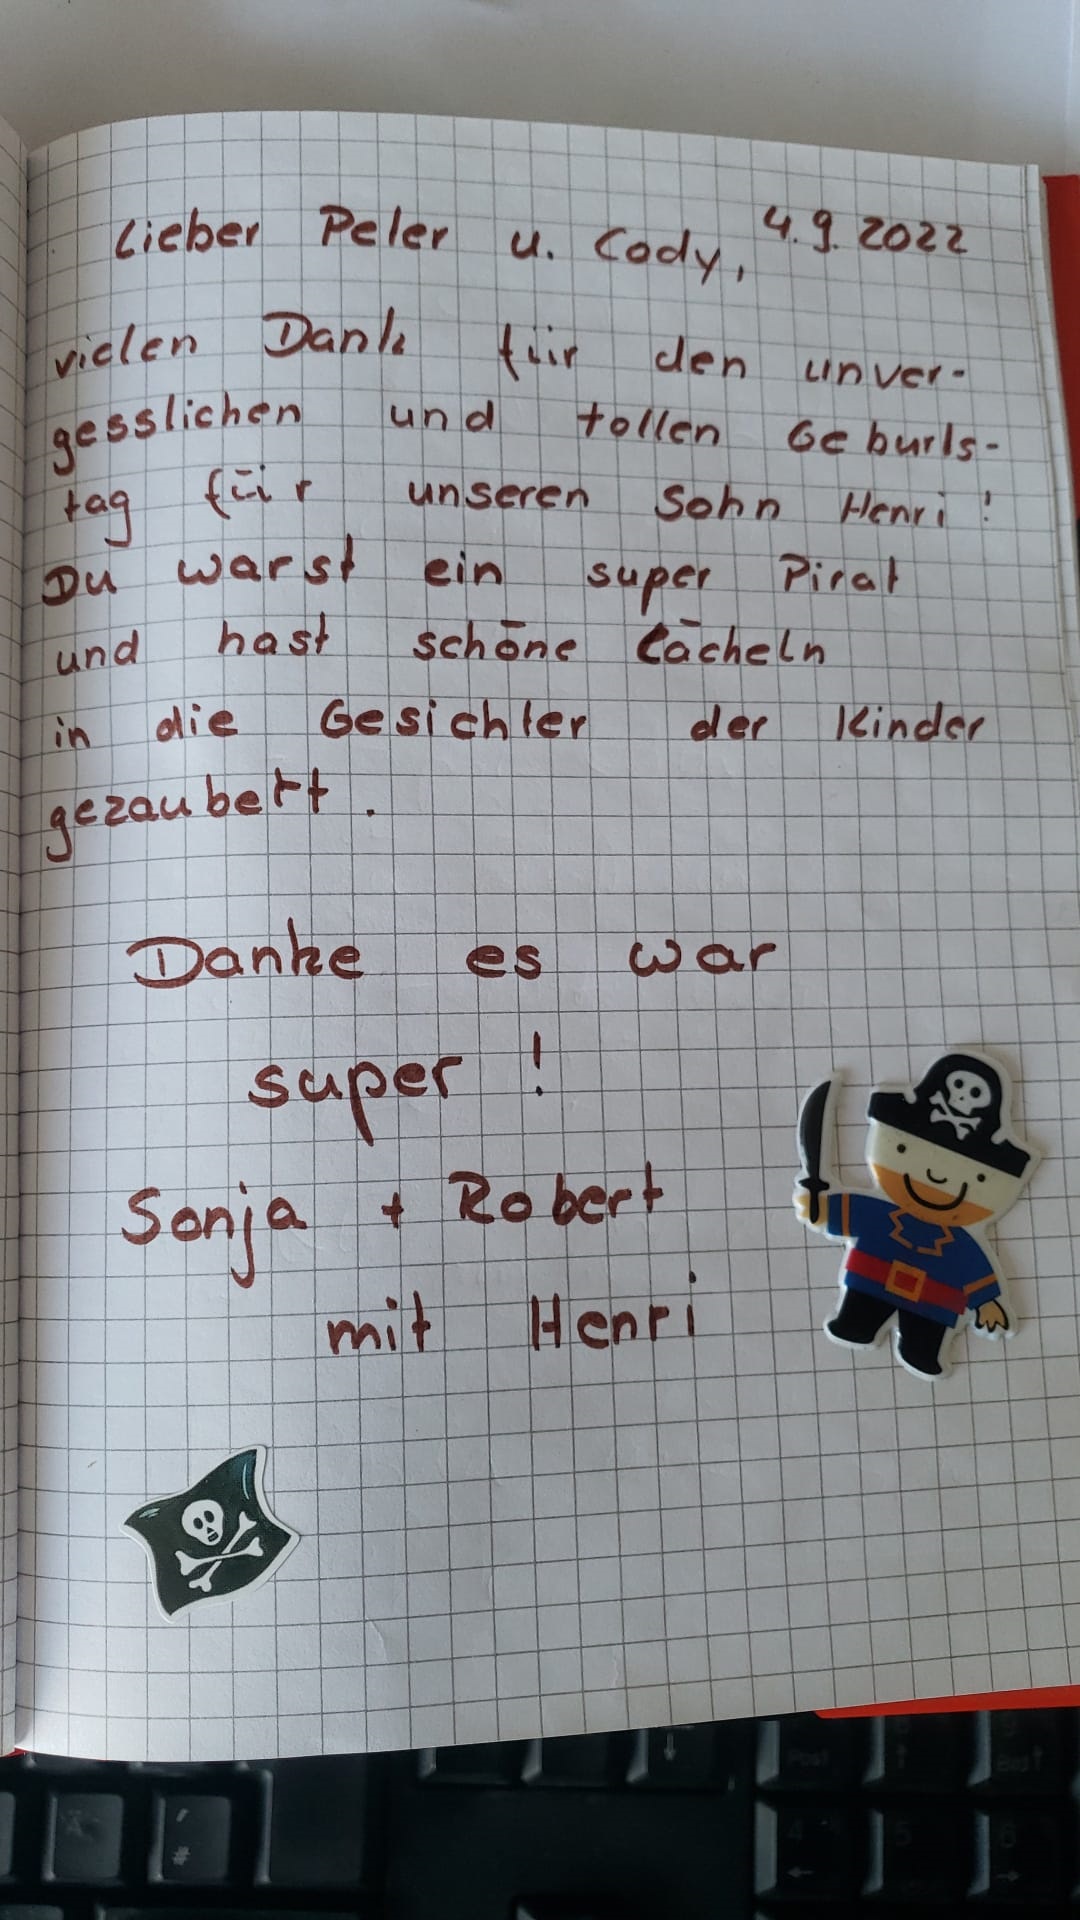 Lieber Peter u. Cody, 4.9.2022
vielen Dank für den unver-
gesslichen und tollen Geburts-
tag für unseren Sohn Henri!
Du warst ein super Pirat
und hast schöne Lächeln
in die Gesichter der Kinder
gezaubert.
Danke es war
super!
Sonja + Robert
mit Henri
Ä
'
#
↓
Post
↑
4
←
5
6
→